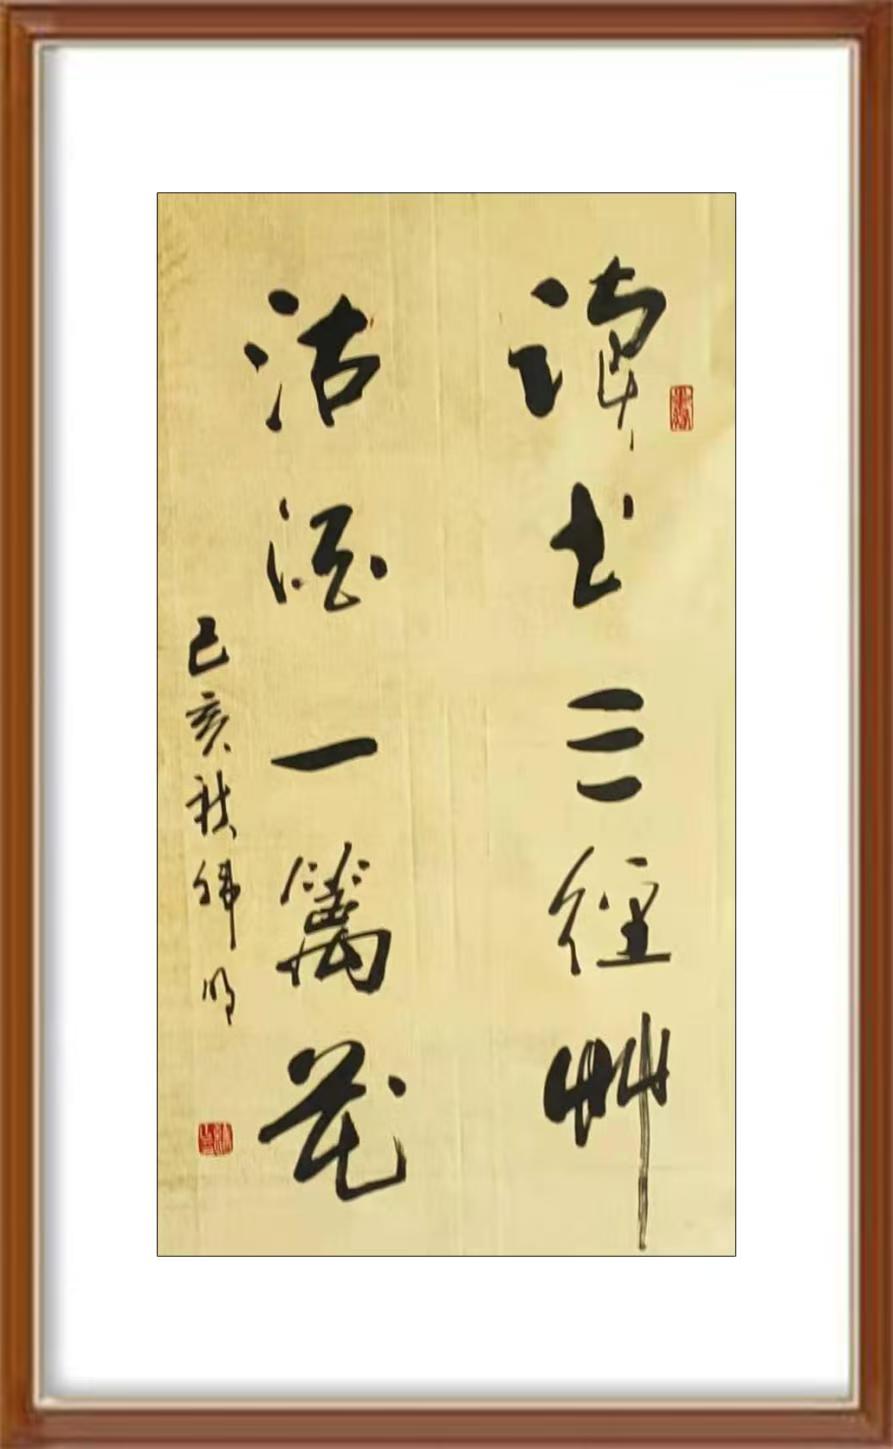 读书三徑艸
沽酒一篱花
己亥秋